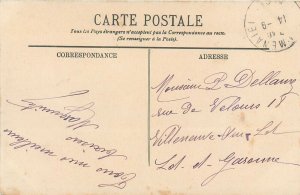 CARTE POSTALE
Tous les Pays étrangers n'acceptent pas la Correspondance au recto.
(Se renseigner à la Poste).
CORRESPONDANCE
ADRESSE
Tous nos meilleurs
Monsieur P. Dellaux
rue de Velours 18
Villeneuve-sur-Lot
Lot-et-Garonne
14 -9